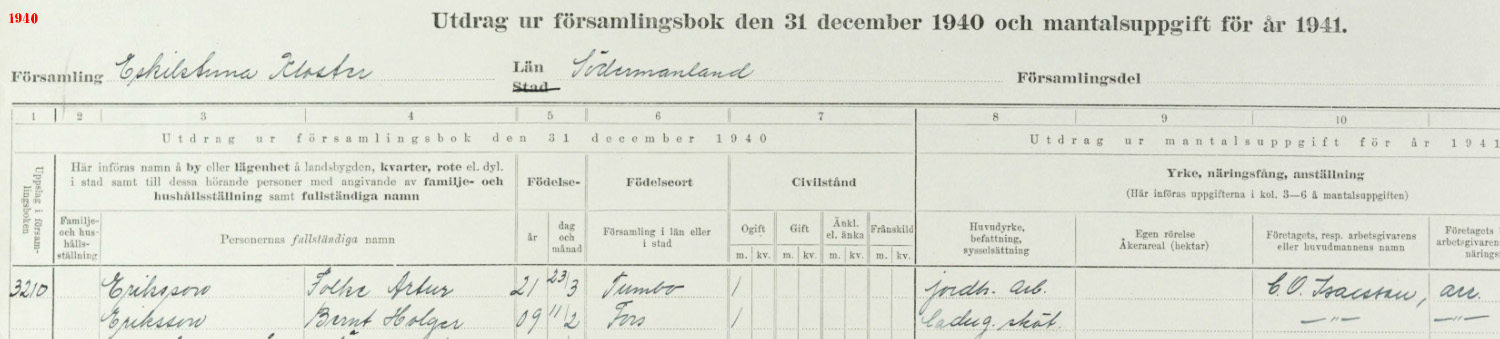 1940
Utdrag ur församlingsbok den 31 december 1940 och mantalsuppgift för år 1941.
Församling Eskilstuna Kloster Län Södermanland Församlingsdel
Stad
1 2 3 4 5 6 7 8 9 10
Utdrag ur församlingsbok den 31 december 1940 Utdrag ur mantalsuppgift för år 1941
Uppslag i försam-
lingsboken
Här införas namn å by eller lägenhet å landsbygden, kvarter, rote el. dyl.
i stad samt till dessa hörande personer med angivande av familje- och
hushållsställning samt fullständiga namn
Familje-
och hus-
hålls-
ställning
Personernas fullständiga namn
Födelse-
år
dag
och
månad
Födelseort
Församling i län eller
i stad
Civilstånd
Ogift Gift Änkl.
el. änka Frånskild
m. kv. m. kv. m. kv. m. kv.
Yrke, näringsfång, anställning
(Här införas uppgifterna i kol. 3—6 å mantalsuppgiften)
Huvudyrke,
befattning,
sysselsättning
Egen rörelse
Åkerareal (hektar)
Företagets, resp. arbetsgivarens
eller huvudmannens namn
Företagets
arbetsgivaren
näring
3210 Eriksson Folke Artur 21 23/3 Tumbo 1 jordb. arb. C. O. Isaesson, arr.
Eriksson Bernt Holger 09 11/2 Fors 1 ladug. sköt. —"— —"—